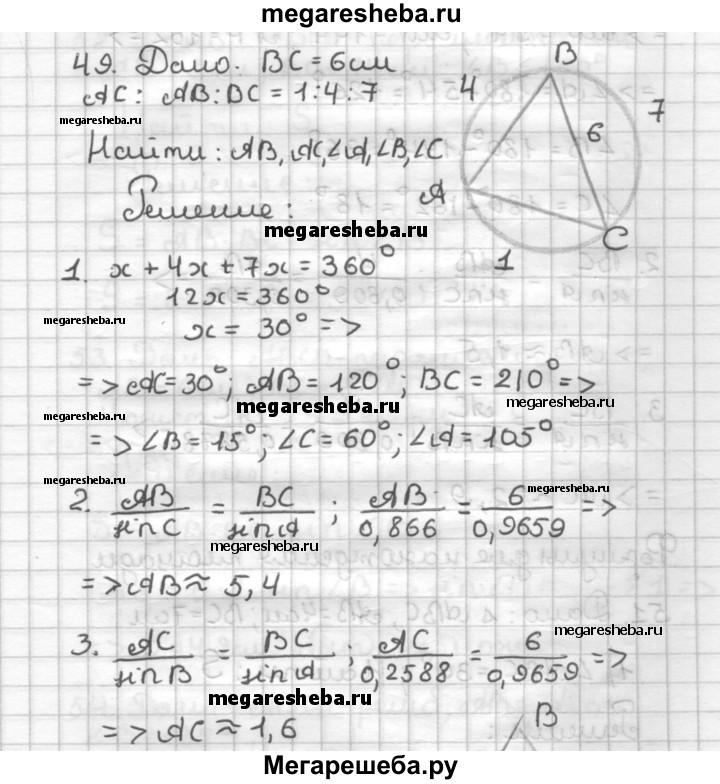 megaresheba.ru
49. Дано: BC = 6см
AC : AB : BC = 1 : 4 : 7
megaresheba.ru
Найти: AB, AC, ∠A, ∠B, ∠C
Решение:
B
4
7
6
A
C
1
megaresheba.ru
1. x + 4x + 7x = 360°
12x = 360°
megaresheba.ru
x = 30° =>
=> AC = 30°; AB = 120°; BC = 210° =>
megaresheba.ru
megaresheba.ru
=> ∠B = 15°; ∠C = 60°; ∠A = 105°
megaresheba.ru
megaresheba.ru
2. AB/sin C = BC/sin A ; AB/0,866 = 6/0,9659 =>
megaresheba.ru
=> AB ≈ 5,4
megaresheba.ru
megaresheba.ru
3. AC/sin B = BC/sin A ; AC/0,2588 = 6/0,9659 =>
megaresheba.ru
=> AC ≈ 1,6
B
Мегарешеба.ру